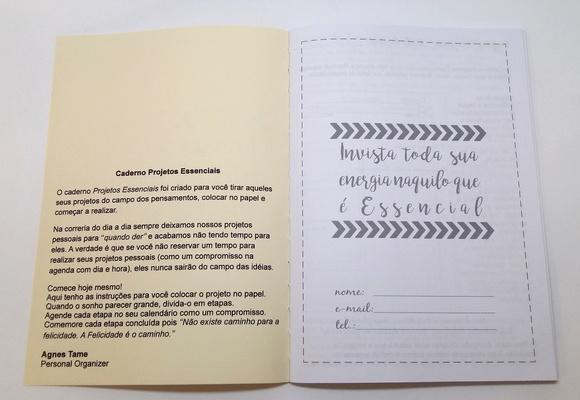 Caderno Projetos Essenciais
O caderno Projetos Essenciais foi criado para você tirar aqueles
seus projetos do campo dos pensamentos, colocar no papel e
começar a realizar.
Na correria do dia a dia sempre deixamos nossos projetos
pessoais para "quando der" e acabamos não tendo tempo para
eles. A verdade é que se você não reservar um tempo para
realizar seus projetos pessoais (como um compromisso na
agenda com dia e hora), eles nunca sairão do campo das idéias.
Comece hoje mesmo!
Aqui tenho as instruções para você colocar o projeto no papel.
Quando o sonho parecer grande, divida-o em etapas.
Agende cada etapa no seu calendário como um compromisso.
Comemore cada etapa concluída pois "Não existe caminho para a
felicidade. A Felicidade é o caminho."
Agnes Tame
Personal Organizer
Invista toda sua
energia naquilo que
é Essencial
nome:
e-mail:
tel.: